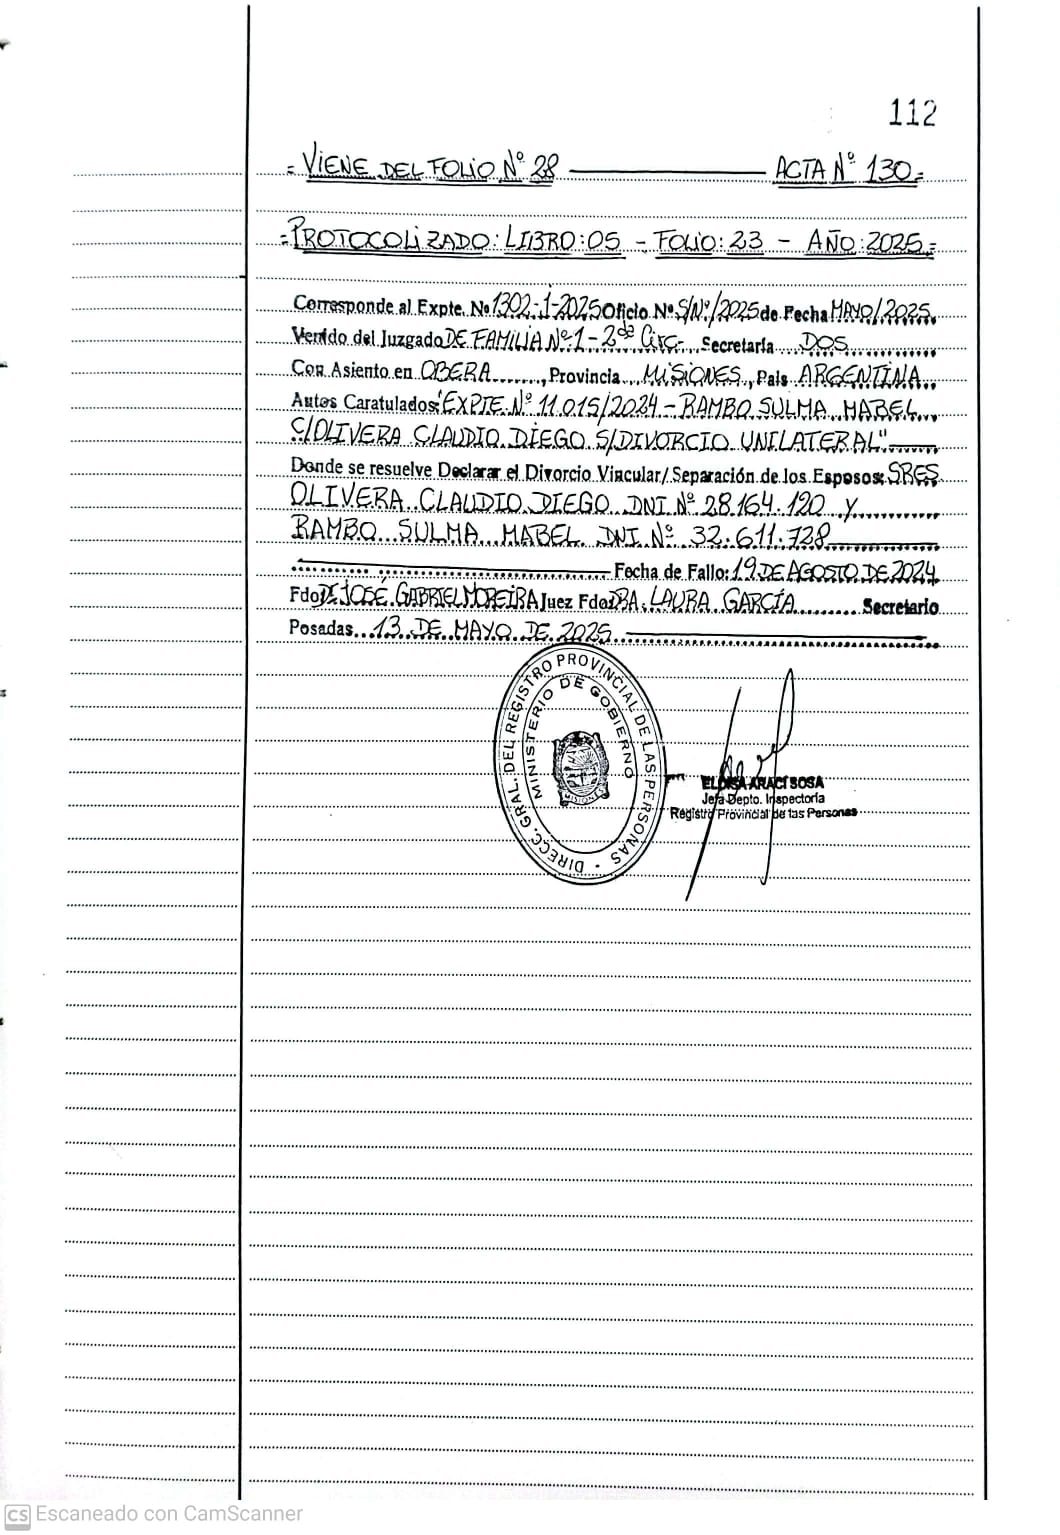 112
= VIENE DEL FOLIO Nº 28 ———— ACTA Nº 130=
=PROTOCOLIZADO: LIBRO: 05 - FOLIO: 23 - AÑO: 2025=
Corresponde al Expte. No 1302-J-2025 Oficio Nº S/Nº/2025 de Fecha MAYO/2025.
Venido del Juzgado DE FAMILIA Nº 1 - 2da Circ., Secretaría DOS
Con Asiento en OBERA, Provincia MISIONES, País ARGENTINA
Autos Caratulados: "EXPTE. Nº 11.015/2024 - RAMBO SULMA MABEL
C/OLIVERA CLAUDIO DIEGO S/DIVORCIO UNILATERAL"
Donde se resuelve Declarar el Divorcio Vincular/ Separación de los Esposos: SRES
OLIVERA CLAUDIO DIEGO DNI Nº 28.164.120 Y
RAMBO SULMA MABEL DNI Nº 32.611.728
Fecha de Fallo: 19 DE AGOSTO DE 2024
Fdo: JOSÉ GABRIEL MOREIRA Juez Fdo: DRA. LAURA GARCÍA Secretario
Posadas 13 DE MAYO DE 2025
DIRECC. GRAL. DEL REGISTRO PROVINCIAL DE LAS PERSONAS
MINISTERIO DE GOBIERNO
MISIONES
ELOISA ARACI SOSA
Jefa Depto. Inspectoría
Registro Provincial de las Personas
CS Escaneado con CamScanner